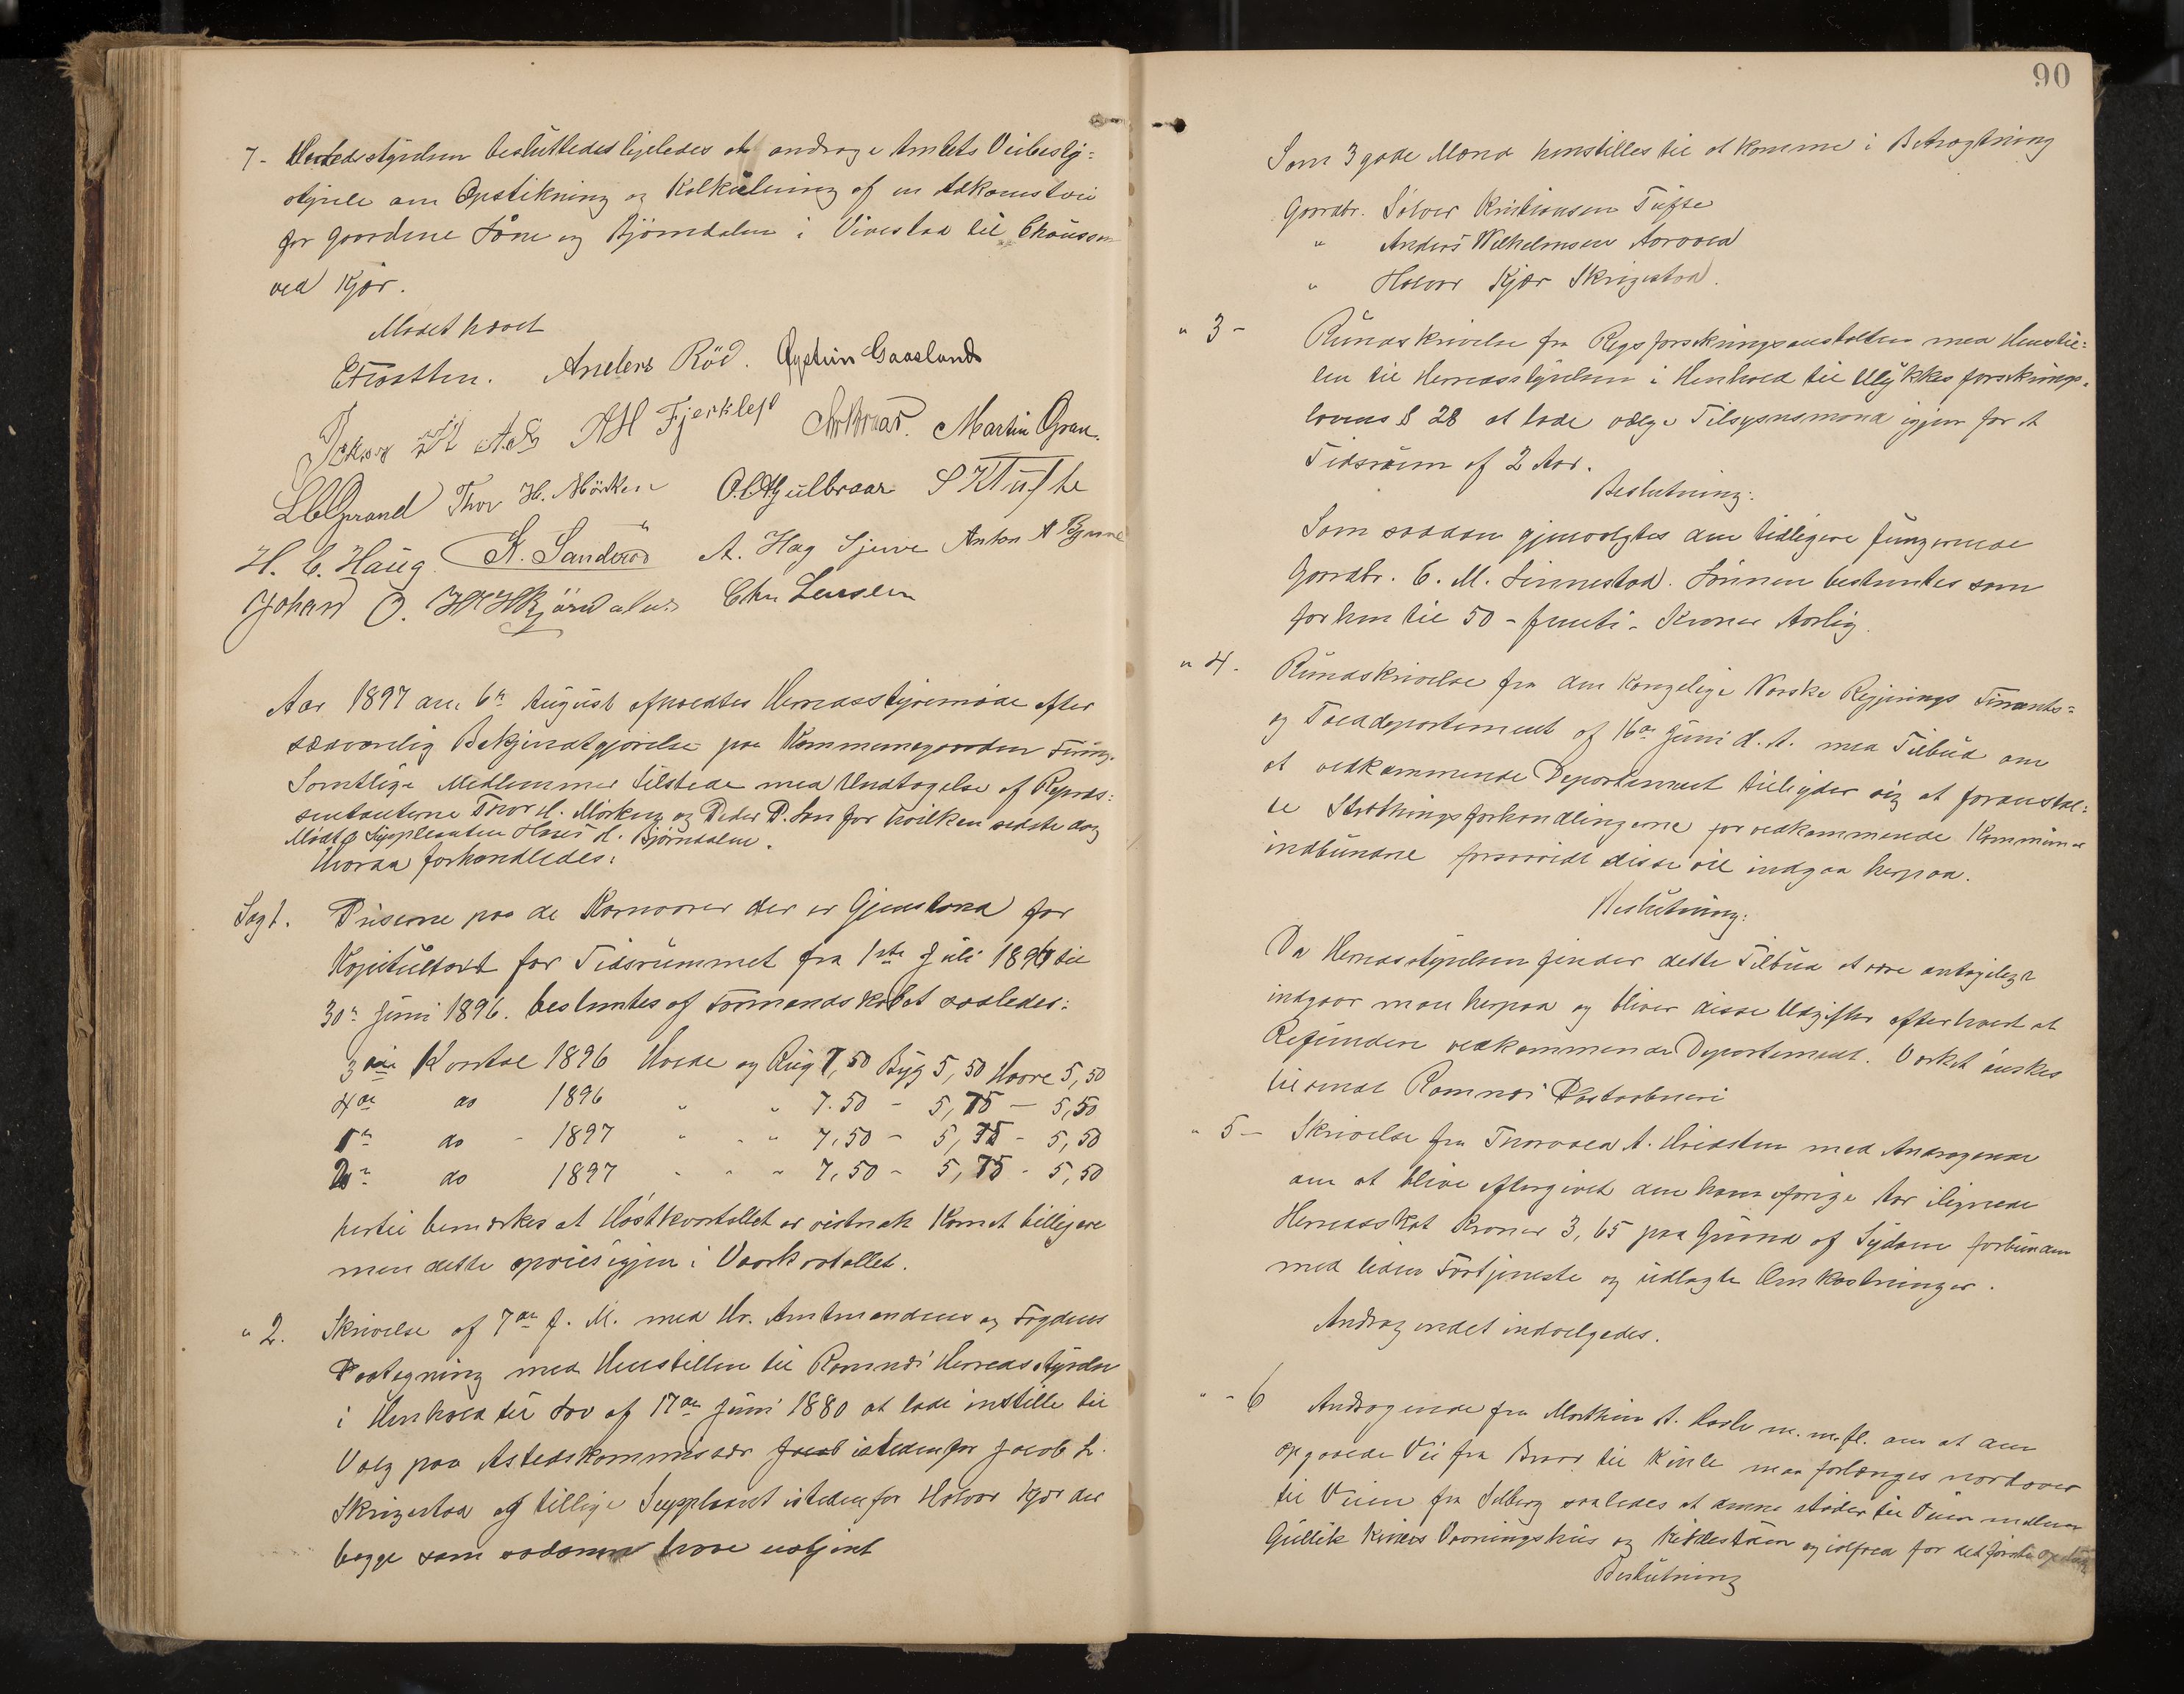 7- Herredsstyrelsen besluttedes ligeledes at andrage Amtets Veibesty=
styrele om Opstikning og Kalkulering af en Adkomstvei
for Gaardene Lone og Bjørndalen i Vivestad til Chausseen
ved Kjær.
Mødet hævet
Anders Röd. Øystein Gaasland
A H Fjerkløp Martin Gran.
Thor H. Mörken O. C. Gulbraar S K Tufte
H. C. Haug K. Sanderöd A. Hag Sjeve Anton A
Johan O. H H Bjørndalen Chr Larsen
Aar 1897 den 6te August afholdtes Herredsstyremøde efter
sædvanlig Bekjendtgjørelse paa Kommunegaarden Fevang.
Samtlige Medlemmer tilstede med Undtagelse af Repræs=
sentanterne Thor H. Mörken og Peder P. Lon for hvilken sidste dog
Mødte Suppleanten Hans H. Bjørndalen.
Hvoraa forhandledes:
Sag 1. Priserne paa de Kornvarer der er Gjenstand for
Kapiteltaxt for Tidsrummet fra 1ste Juli 1896 til
30te Juni 1896. bestemtes af Formandskabet saaledes:
3die Kvartal 1896 Hvede og Rug 7,50 Byg 5,50 Havre 5,50
4de do 1896 " " 7.50 - 5,75 - 5,50
1te do - 1897 " - " 7,50 - 5,75 - 5,50
2te do 1897 " - " 7,50 - 5,75 - 5,50
hertil bemærkes at Høstkvartallet er vistnok Kornet billigere
men dette opveies igjen i Vaarkvartallet.
" 2. Skrivelse af 7de f. M. med Hr. Amtmandens og Fogdens
Paategning med Henstillen til Ramnæs Herredsstyrelse
i Henhold til Lov af 17de Juni 1880 at lade instille til
Valg paa Astedskommissær Jacob istedenfor Jacob L.
Skrigestad og tillige Suppleant istedenfor Halvor Kjær der
begge som sadanne have udtjent
90
Som 3 gode Mænd henstilles til at komme i Betragtning
Gaardbr. Sølver Kristiansen Tufte
" Anders Wilhelmsen Aarovd
" Halvor Kjær Skrigestad.
" 3 - Rundskrivelse fra Rigsforsikringsanstalten med Henstil=
len til Herredsstyrelsen i Henhold til Ulykkesforsikrings=
lovens § 28 at lade vælge Tilsynsmænd igjen for et
Tidsrum af 2 Aar.
Beslutning:
Som saadan gjenvalgtes den tidligere fungerende
Gaardbr. C. M. Linnestad. Lønnen bestemtes som
forhen til 50 - femti - Kroner Aarlig.
" 4. Rundskrivelse fra den Kongelige Norske Regjerings Finants=
og Tolddepartement af 16de Juni d. A. med Tilbud om
at vedkommende Departement tilbyder sig at foranstal=
te Storthingsforhandlingerne for vedkommende Kommuner
indbundne forsaavidt disse vil indgaa herpaa.
Beslutning:
Da Herredsstyrelsen finder dette Tilbud at være antageligt
indgaar man herpaa og bliver disse Udgifter efterhvert at
Refundere vedkommende Departement. Værket ønskes
tilsendt Ramnæs Postaabneri
" 5 - Skrivelse fra Thorvald A. Hvidsten med Andragende
om at blive eftergivet den ham forrige Aar ilignede
Herredsskat Kroner 3,65 paa Grund af Sygdom forbunden
med liden Fortjeneste og udlagte Omkostninger.
Andragendet indvilgedes.
" - 6 Andragende fra Mathias A. Horle m. m. fl. om at den
opgaaede Vei fra Braar til Kinle maa forlænges nordover
til Veien fra Solberg saaledes at denne støder til Veien mellem
Gullik Kinles Vaaningshus og Kittlestuen og ialfred for det første opstuk
Beslutning